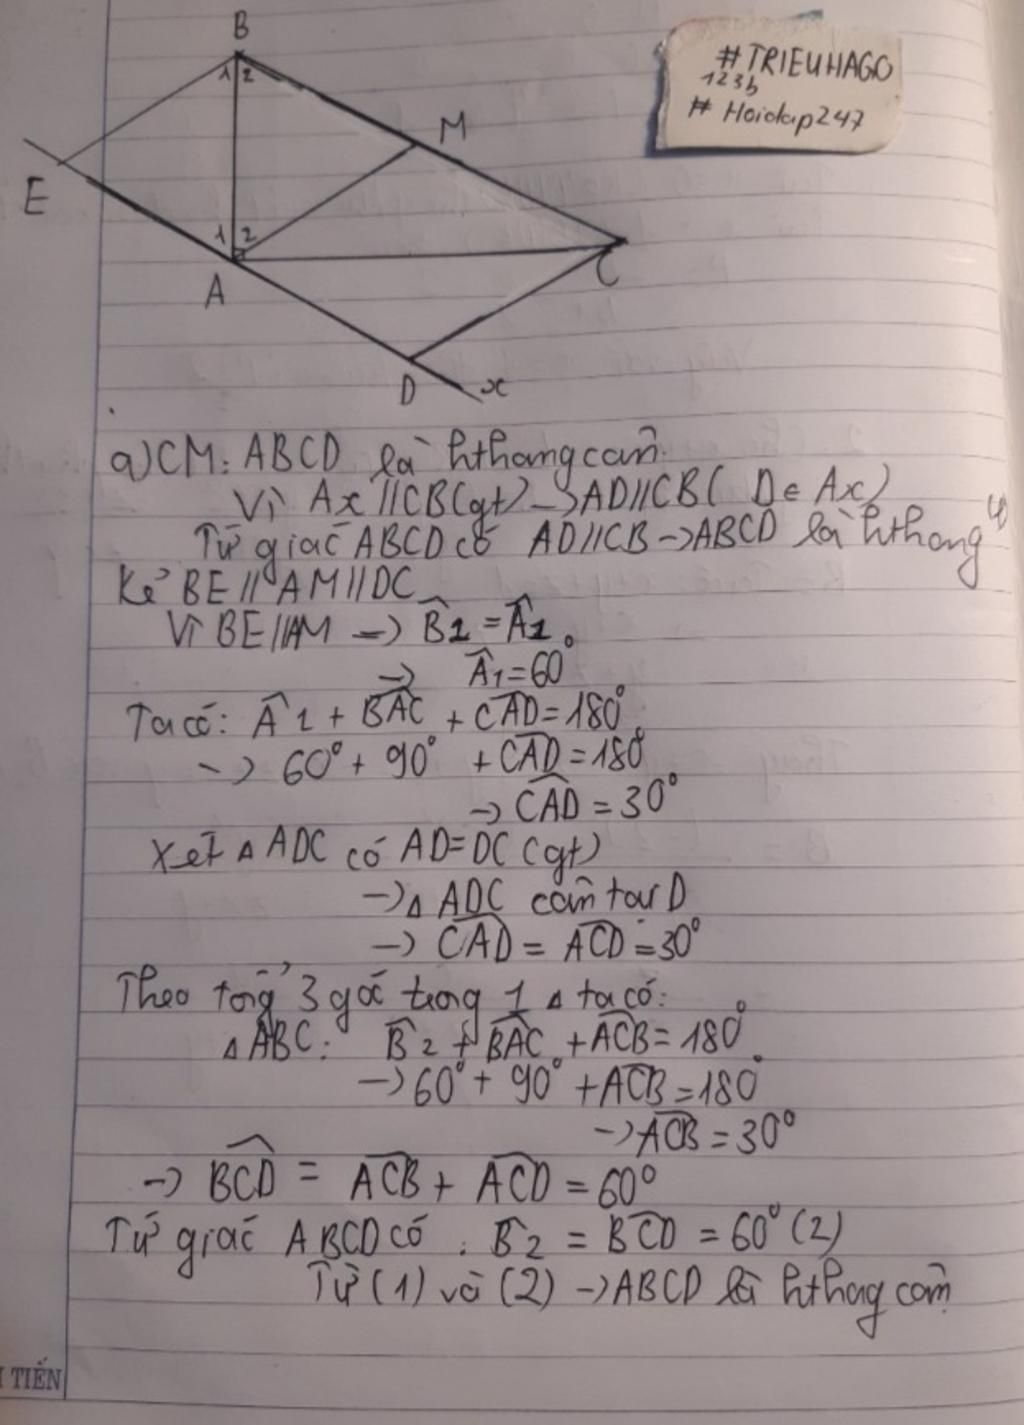 B
1 2
M
#TRIEUHAGO
123b
# Hoidap247
E
1 2
A
C
D
x
a) CM: ABCD là hthang cân.
Vì Ax // CB (gt) → AD // CB ( D ∈ Ax)
Tứ giác ABCD có AD // CB → ABCD là hthang (1)
Kẻ BE // AM // DC
Vì BE // AM → B̂₂ = Â₁
→ Â₁ = 60°
Ta có: Â₁ + BAC + CAD = 180°
→ 60° + 90° + CAD = 180°
→ CAD = 30°
Xét △ ADC có AD = DC (gt)
→ △ ADC cân tại D
→ CAD = ACD = 30°
Theo tổng 3 góc trong 1 △ ta có:
△ ABC: B̂₂ + BAC + ACB = 180°
→ 60° + 90° + ACB = 180°
→ ACB = 30°
→ BCD = ACB + ACD = 60°
Tứ giác ABCD có : B̂₂ = BCD = 60° (2)
Từ (1) và (2) → ABCD là hthag cân
TIẾN